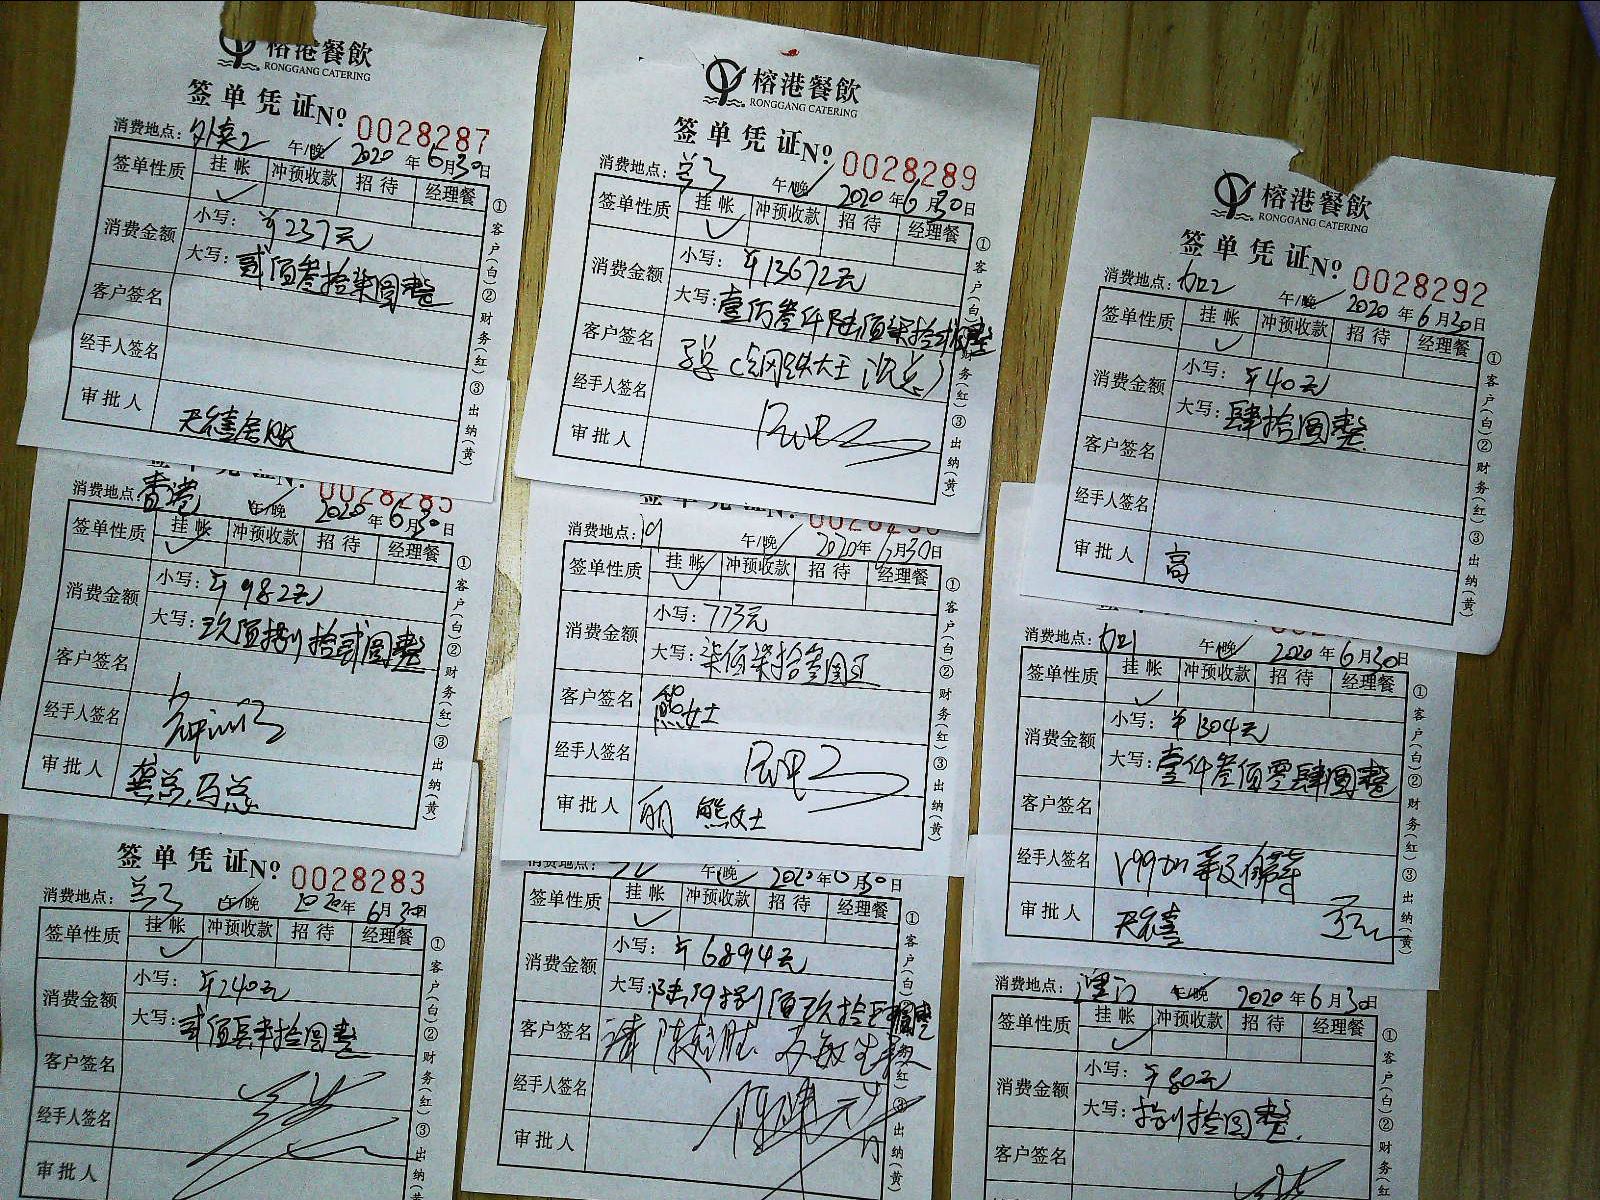 榕港餐飲
RONGGANG CATERING
签单凭证 No 0028287
消费地点: 外卖2 午/晚 2020年6月30日
签单性质 挂帐 冲预收款 招待 经理餐
消费金额 小写: ¥237元
大写: 贰佰叁拾柒圆整
客户签名
经手人签名
审批人
①客户(白)②财务(红)③出纳(黄)
签单凭证 No
消费地点: 香港 午/晚 2020年6月30日
签单性质 挂帐 冲预收款 招待 经理餐
消费金额 小写: ¥982元
大写: 玖佰捌拾贰圆整
客户签名
经手人签名
审批人 龚总.马总
①客户(白)②财务(红)③出纳(黄)
签单凭证 No 0028283
消费地点: 午/晚 2020年6月30日
签单性质 挂帐 冲预收款 招待 经理餐
消费金额 小写: ¥240元
大写: 贰佰肆拾圆整
客户签名
经手人签名
审批人
①客户(白)②财务(红)③出纳(黄)
榕港餐飲
RONGGANG CATERING
签单凭证 No 0028289
消费地点: 午/晚 2020年6月30日
签单性质 挂帐 冲预收款 招待 经理餐
消费金额 小写: ¥13672元
大写: 壹万叁仟陆佰柒拾贰圆整
客户签名
经手人签名
审批人
①客户(白)②财务(红)③出纳(黄)
签单凭证 No
消费地点: 午/晚 2020年6月30日
签单性质 挂帐 冲预收款 招待 经理餐
消费金额 小写: 773元
大写: 柒佰柒拾叁圆正
客户签名 熊女士
经手人签名
审批人 丽 熊女士
①客户(白)②财务(红)③出纳(黄)
消费地点: 午/晚 2020年6月30日
签单性质 挂帐 冲预收款 招待 经理餐
消费金额 小写: ¥6894元
大写: 陆仟捌佰玖拾肆圆整
客户签名
经手人签名
审批人
①客户(白)②财务(红)③出纳(黄)
榕港餐飲
RONGGANG CATERING
签单凭证 No 0028292
消费地点: 加2 午/晚 2020年6月30日
签单性质 挂帐 冲预收款 招待 经理餐
消费金额 小写: ¥40元
大写: 肆拾圆整
客户签名
经手人签名
审批人 高
①客户(白)②财务(红)③出纳(黄)
消费地点: 加1 午/晚 2020年6月30日
签单性质 挂帐 冲预收款 招待 经理餐
消费金额 小写: ¥1304元
大写: 壹仟叁佰零肆圆整
客户签名
经手人签名
审批人 天禧
①客户(白)②财务(红)③出纳(黄)
消费地点: 澳门 午/晚 2020年6月30日
签单性质 挂帐 冲预收款 招待 经理餐
消费金额 小写: ¥80元
大写: 捌拾圆整
客户签名
①客户(白)②财务(红